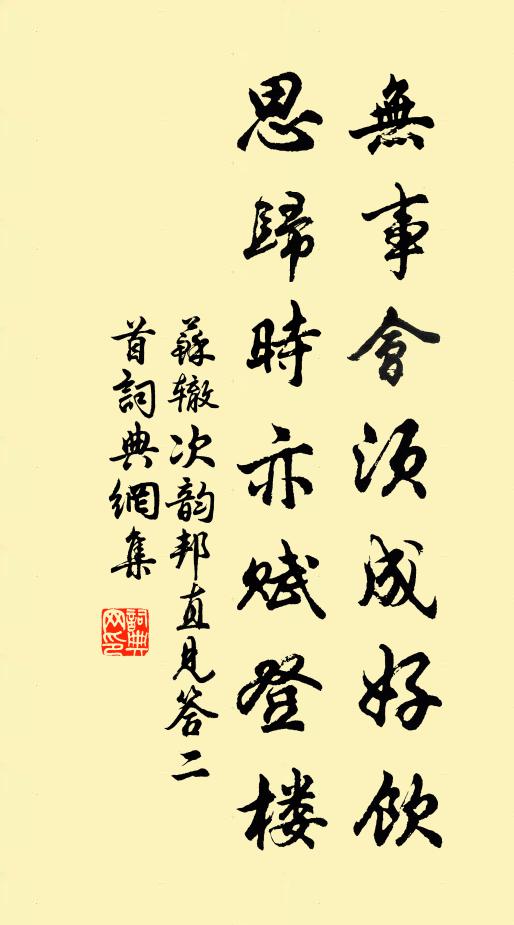 無事會須成好飲
思歸時亦賦登楼
蘇辙次韵邦直見答二
首詞典網集
詞典
网印